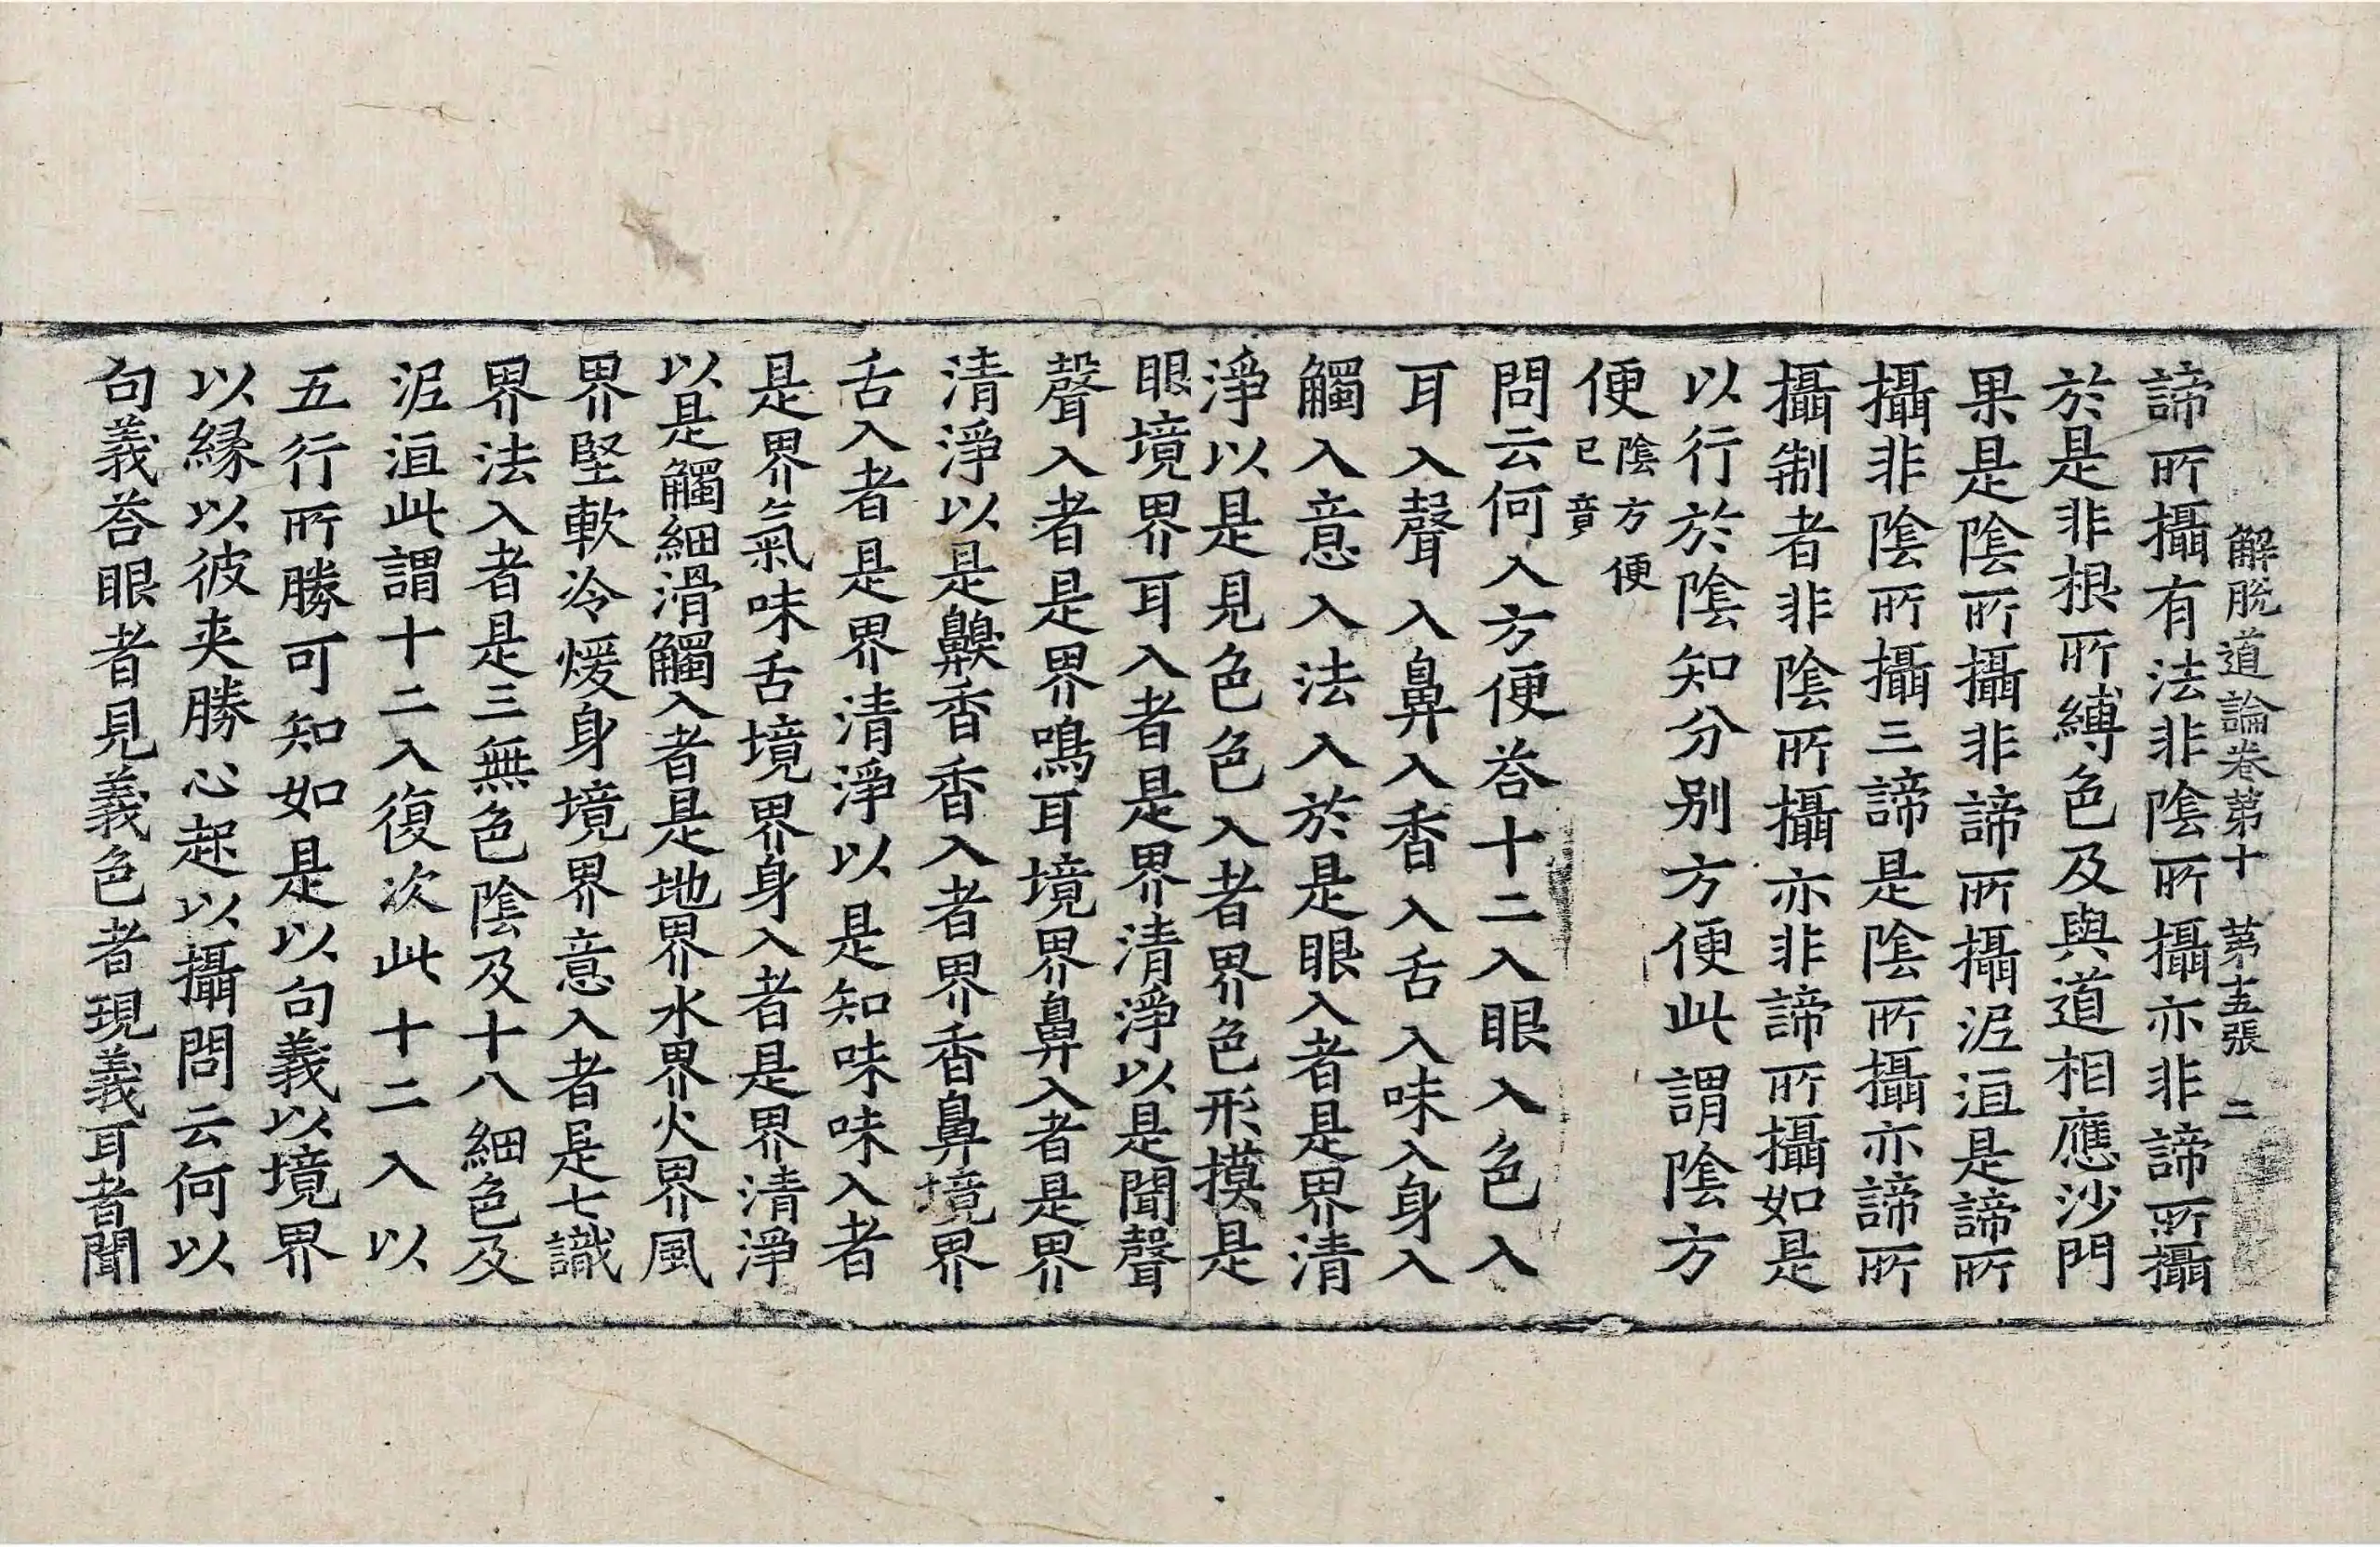 解脫道論卷第十 第十五張 二
諦所攝有法非陰所攝亦非諦所攝
於是非根所縛色及與道相應沙門
果是陰所攝非諦所攝泥洹是諦所
攝非陰所攝三諦是陰所攝亦諦所
攝制者非陰所攝亦非諦所攝如是
以行於陰知分別方便此謂陰方
便陰方便已竟
問云何入方便荅十二入眼入色入
耳入聲入鼻入香入舌入味入身入
觸入意入法入於是眼入者是界清
淨以是見色色入者界色形摸是
眼境界耳入者是界清淨以是聞聲
聲入者是界鳴耳境界鼻入者是界
清淨以是齅香香入者界香鼻境界
舌入者是界清淨以是知味味入者
是界氣味舌境界身入者是界清淨
以是觸細滑觸入者是地界水界火界風
界堅軟冷煖身境界意入者是七識
界法入者是三無色陰及十八細色及
泥洹此謂十二入復次此十二入以
五行所勝可知如是以句義以境界
以緣以彼夾勝心起以攝問云何以
句義荅眼者見義色者現義耳者聞